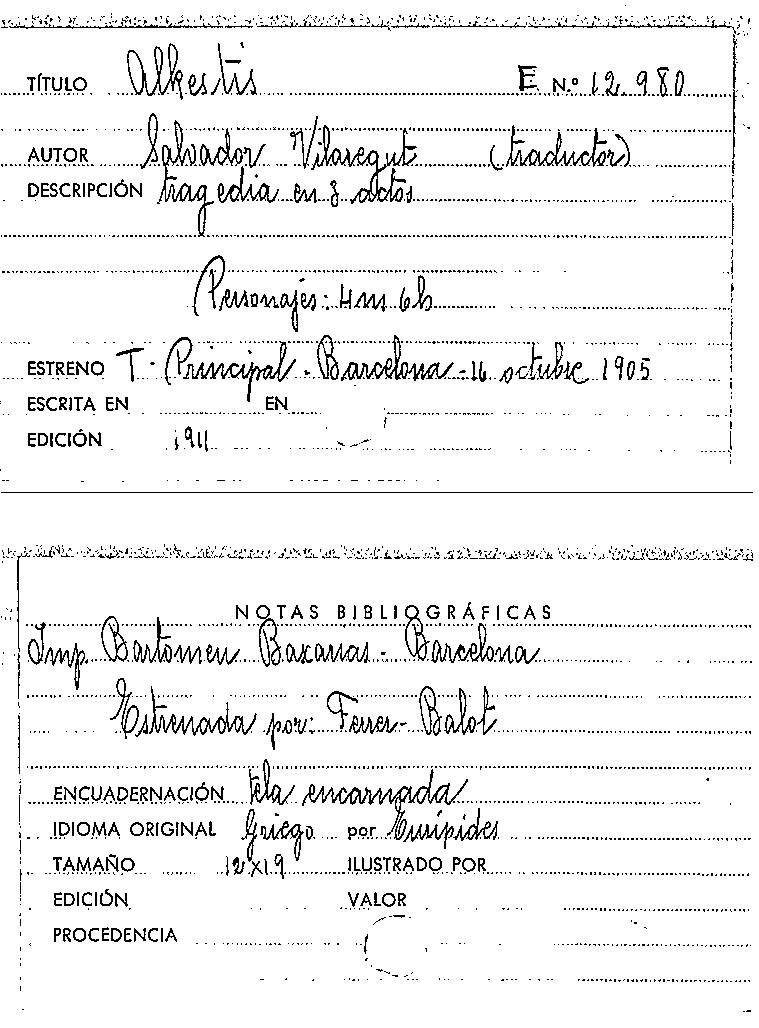 TÍTULO Alkestis E N.º 12.980
AUTOR Salvador Vilaregut (traductor)
DESCRIPCIÓN tragedia en 3 actos
Personajes: 4m 6h
ESTRENO T. Principal - Barcelona - 16 octubre 1905
ESCRITA EN EN
EDICIÓN 1911
NOTAS BIBLIOGRÁFICAS
Imp. Bartomeu Baxarias - Barcelona
Estrenada por: Ferrer - Balot
ENCUADERNACIÓN tela encarnada
IDIOMA ORIGINAL Griego por Eurípides
TAMAÑO 12x19 ILUSTRADO POR
EDICIÓN VALOR
PROCEDENCIA